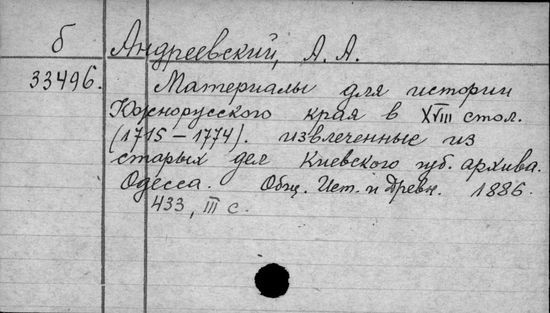 б Андреевский, А. А.
33496. Материалы для истории
Южнорусского края в XVIII стол.
(1715-1774). извлеченные из
старых дел Киевского губ. архива.
Одесса. Общ. Ист. и Древн. 1886.
433, III с.